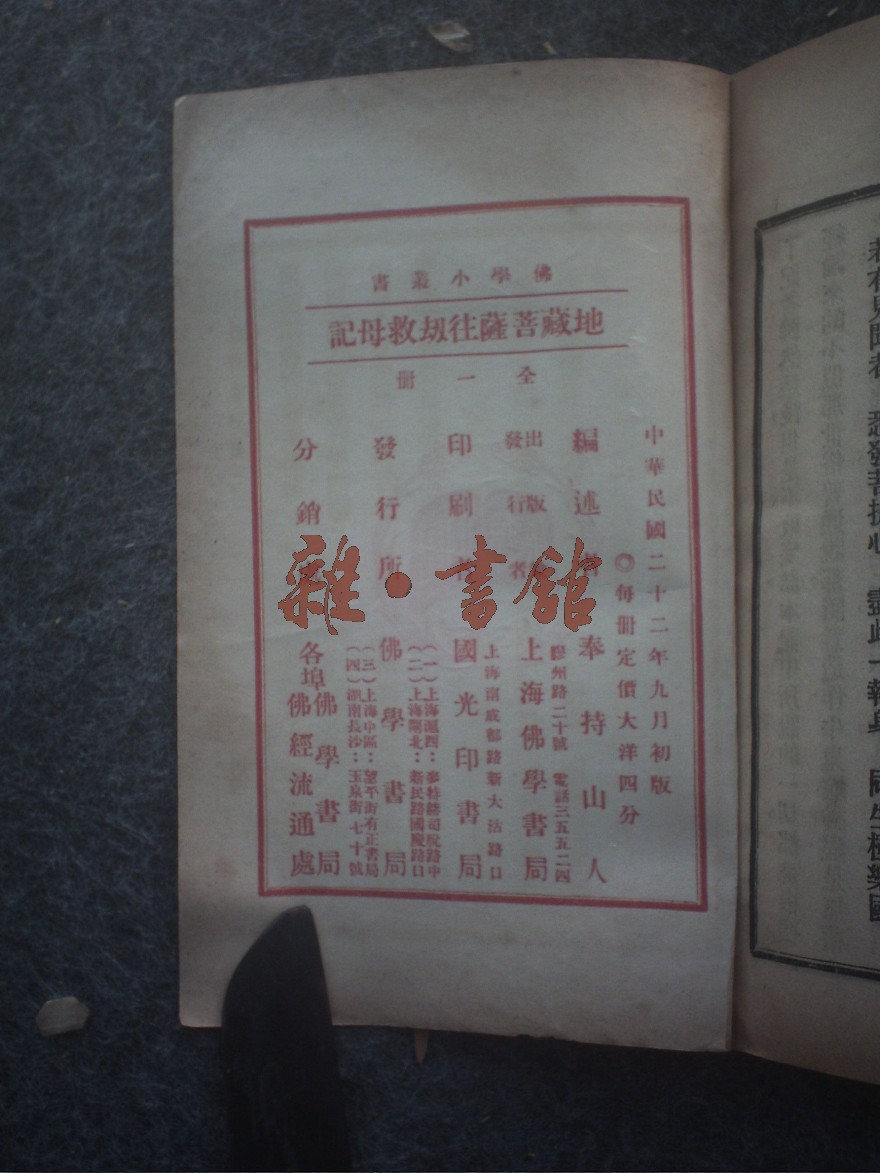 佛學小叢書
地藏菩薩往刼救母記
全一册
中華民國二十二年九月初版
◎每冊定價大洋四分
編述者 奉持山人
出版兼發行者 上海佛學書局
膠州路二十號 電話三五五二四
印刷者 國光印書局
上海南成都路新大沽路口
發行所 佛學書局
(一)上海滬西:麥特赫司脫路中
(二)上海閘北:新民路國慶路口
(三)上海中區:望平街有正書局
(四)湖南長沙:玉泉街七十號
分銷處 各埠佛學書局
佛經流通處
雜·書館
悉發菩提心
盡此一報身
同生極樂國